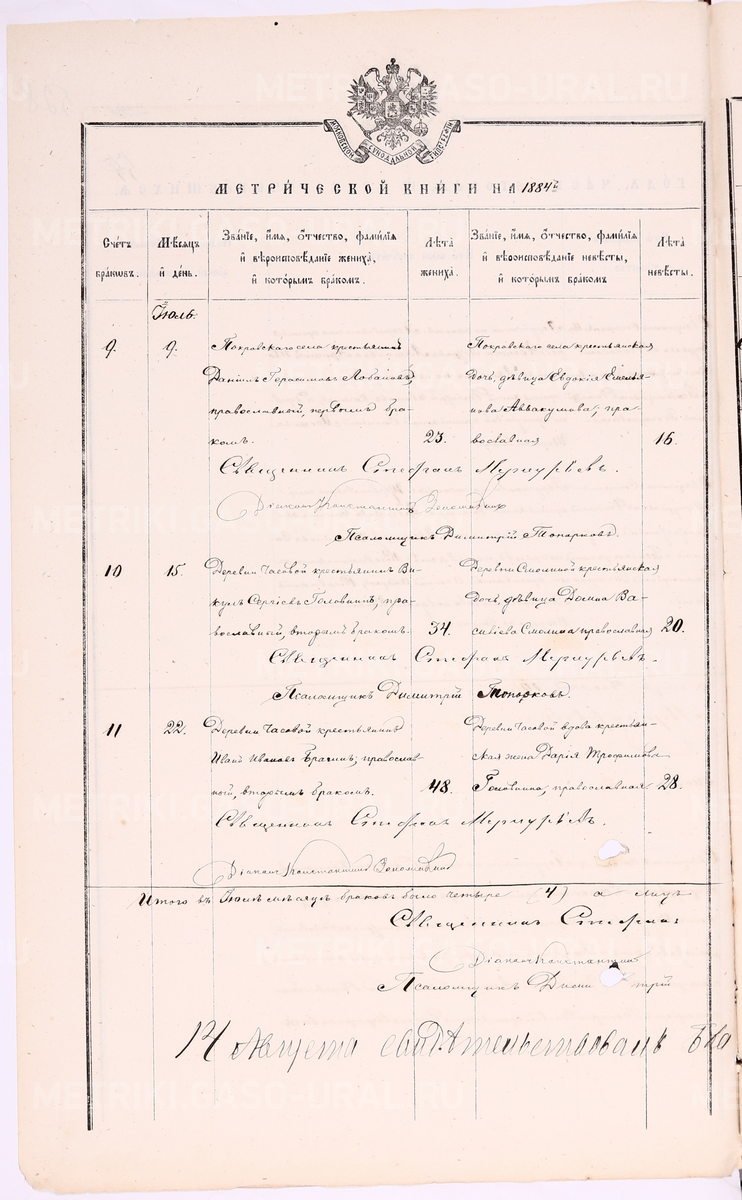 МОСКОВСКОЙ СѴНОДАЛЬНОЙ ТИПОГРАФІИ
МЕТРИ́ЧЕСКОЙ КНИ́ГИ НА 1884 г
Счётъ бра́ковъ.
Мѣ́сяцъ и҆ де́нь.
Зва́нїе, и҆́мя, ѻ҆́тчество, фами́лїя и҆ вѣроисповѣ́данїе жениха̀, и҆ кото́рымъ бра́комъ.
Лѣ́та жениха̀.
Зва́нїе, и҆́мя, ѻ҆́тчество, фами́лїя и҆ вѣроисповѣ́данїе невѣ́сты, и҆ кото́рымъ бра́комъ
Лѣ́та невѣ́сты.
Іюль.
9. 9. Покровскаго села крестьянинъ
Даніилъ Герасимовъ Лобановъ,
православный, первымъ бра-
комъ. 23.
Покровскаго села крестьянская
дочь, дѣвица Евдокія Емелья-
нова Аввакумова, пра-
вославная 16.
Священникъ Стефанъ Меркурьевъ.
Діаконъ Константинъ
Псаломщикъ Димитрій Топорковъ.
10 15. Деревни Часовой крестьянинъ Ви-
кулъ Сергіевъ Головинъ, пра-
вославный, вторымъ бракомъ. 34.
Деревни Смолиной крестьянская
дочь, дѣвица Домна Ва-
силіева Смолина православная 20.
Священникъ Стефанъ Меркурьевъ.
Псаломщикъ Димитрій Топорковъ.
11 22. Деревни Часовой крестьянинъ
Иванъ Ивановъ Брагинъ, православ-
ный, вторымъ бракомъ. 48.
Деревни Часовой вдова крестьян-
ская жена Дарія Трофимова
Головина, православная 28.
Священникъ Стефанъ Меркурьевъ.
Діаконъ Константинъ
Итого въ Іюлѣ мѣсяцѣ браковъ было четыре (4) а лицъ
Священникъ Стефанъ
Діаконъ Константинъ
Псаломщикъ Димитрій
14 Августа свидѣтельствовалъ Бла
METRIKI.GASO-URAL.RU